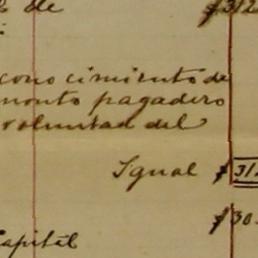 de $312
conocimiento de
monto pagadero
voluntad del
Igual $312
$30
Capital